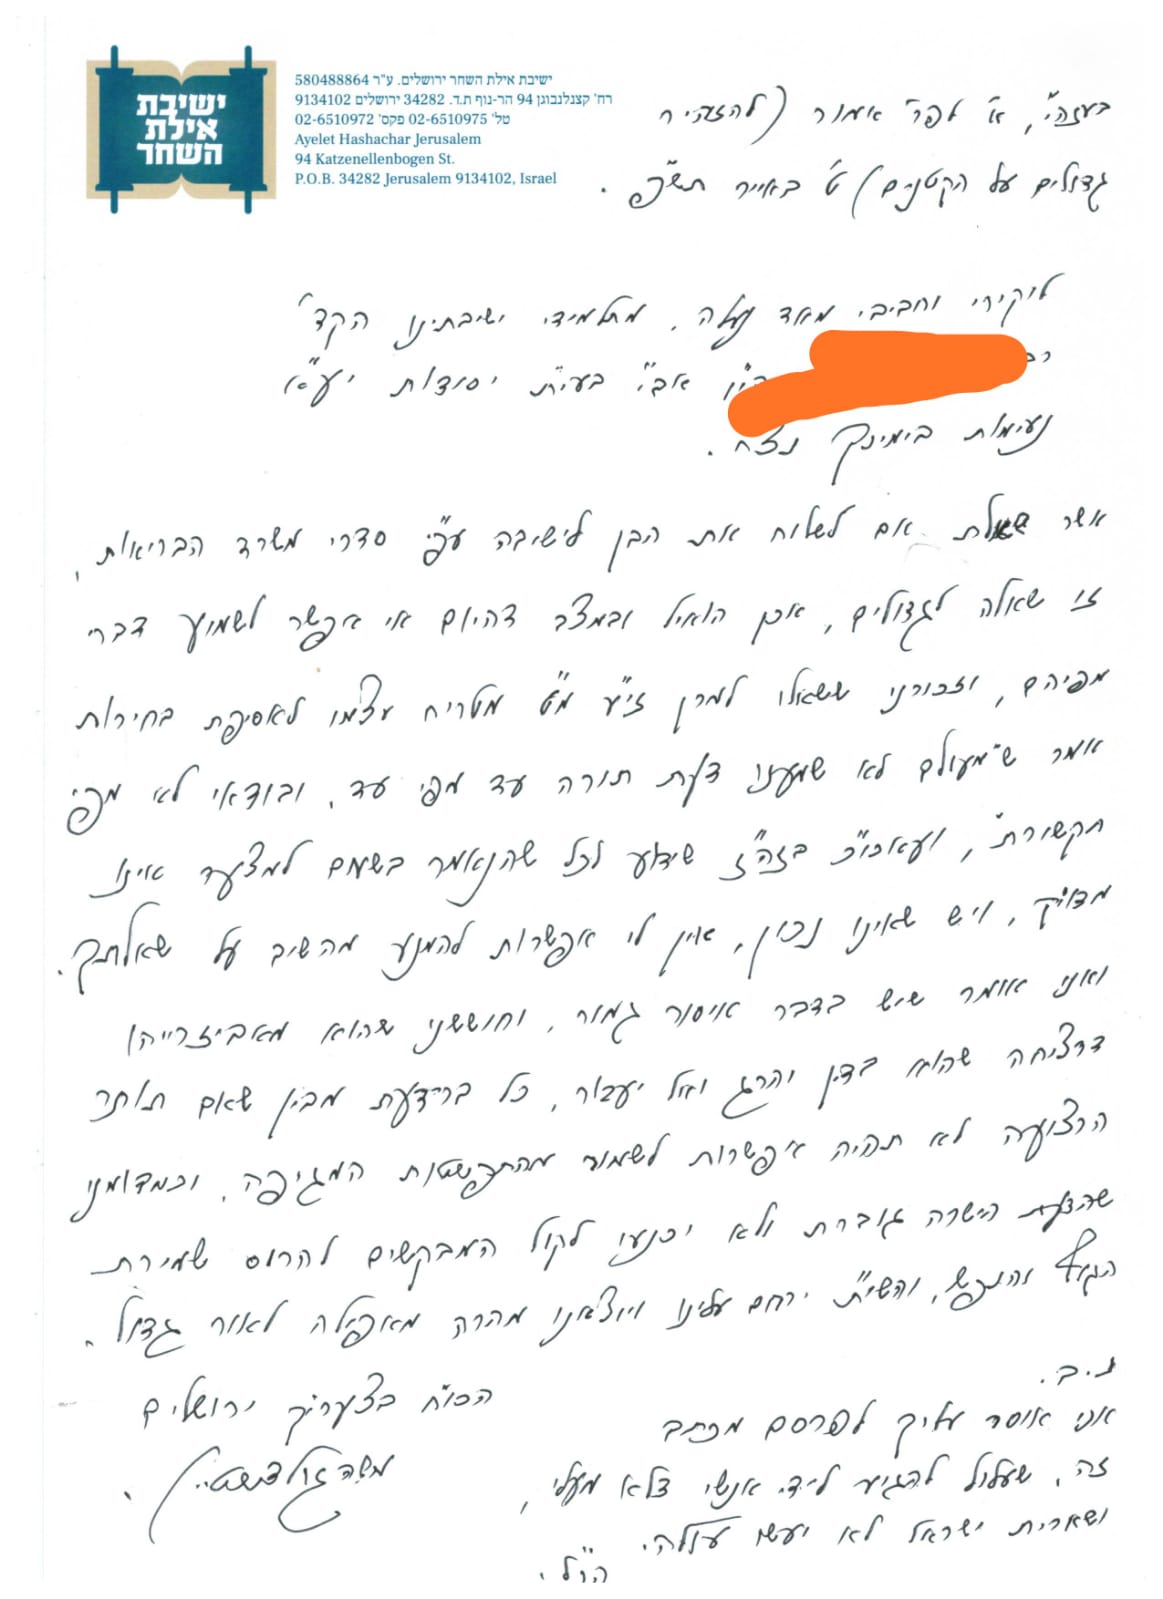 ישיבת
אילת
השחר
ישיבת אילת השחר ירושלים. ע"ר 580488864
רח' קצנלנבוגן 94 הר-נוף ת.ד. 34282 ירושלים 9134102
טל' 02-6510975 פקס' 02-6510972
Ayelet Hashachar Jerusalem
94 Katzenellenbogen St.
P.O.B. 34282 Jerusalem 9134102, Israel
בעזהי", א' לפר' אמור (להזהיר
גדולים על הקטנים) ט' באייר תש"פ.
ליקירי וחביבי מאד נעלה, מתלמידי ישיבתינו הקד'
הי"ו אב"י בעי"ת יסודות יע"א
נעימות בימינך נצח.
אשר שאלת אם לשלוח את הבן לישיבה עפ"י סדרי משרד הבריאות,
זו שאלה לגדולים, אכן הואיל ובמצב דהיום אי אפשר לשמוע דברי
מפיהם, וזכורני ששאלו למרן זי"ע מ"ט מטריח עצמו לאסיפת בחירות
אמר ש"מעולם לא שמענו דעת תורה עד מפי עד, ובודאי לא מפי
תקשורת", ועאכו"כ בזה"ז שידוע לכל שהנאמר בשמם למצער אינו
מדויק, ויש שאינו נכון, אין לי אפשרות להמנע מהשיב על שאלתך.
ואני אומר שיש בדבר איסור גמור, וחוששני שהוא מאביזרייהו
דרציחה שהוא בדין יהרג ואל יעבור, כל בר-דעת מבין שאם תותר
הרצועה לא תהיה אפשרות לשמור מהתפשטות המגיפה, וכמדומני
שהדעת הישרה גוברת ולא יכנעו לקול המבקשים להרוס שמירת
הגוף והנפש, והשי"ת ירחם עלינו ויוציאנו מהרה מאפילה לאור גדול.
הכו"ח בצער"ך ירושלים
משה גולדשטיין
נ.ב.
אני אוסר עליך לפרסם מכתב
זה, שעלול להגיע ליד אנשי דלא מעלי,
ושארית ישראל לא יעשו עולה.
הנ"ל.